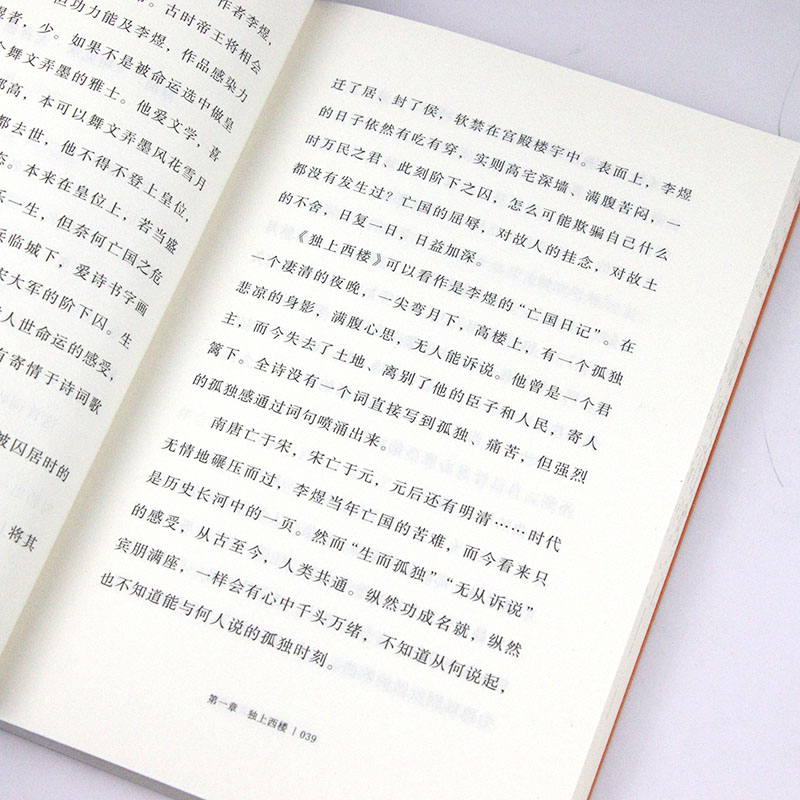 作者李煜，
古时帝王将相会
功力能及李煜，作品感染力
煜者，少。如果不是被命运选中做皇
个舞文弄墨的雅士。他爱文学，喜
都高，本可以舞文弄墨风花雪月
都去世，他不得不登上皇位，
态。本来在皇位上，若当盛
乐一生，但奈何亡国之危
兵临城下，爱诗书字画
宋大军的阶下囚。生
人世命运的感受，
有寄情于诗词歌
被囚居时的
将其
迁了居、封了侯，软禁在宫殿楼宇中。表面上，李煜
的日子依然有吃有穿，实则高宅深墙、满腹苦闷，一
时万民之君、此刻阶下之囚，怎么可能欺骗自己什么
都没有发生过？亡国的屈辱，对故人的挂念，对故土
的不舍，日复一日，日益加深。
《独上西楼》可以看作是李煜的“亡国日记”。在
一个凄清的夜晚，一尖弯月下，高楼上，有一个孤独
悲凉的身影，满腹心思，无人能诉说。他曾是一个君
主，而今失去了土地、离别了他的臣子和人民，寄人
篱下。全诗没有一个词直接写到孤独、痛苦，但强烈
的孤独感通过词句喷涌出来。
南唐亡于宋，宋亡于元，元后还有明清……时代
无情地碾压而过，李煜当年亡国的苦难，而今看来只
是历史长河中的一页。然而“生而孤独”“无从诉说”
的感受，从古至今，人类共通。纵然功成名就，纵然
宾朋满座，一样会有心中千头万绪，不知道从何说起，
也不知道能与何人说的孤独时刻。
第一章 独上西楼 | 039